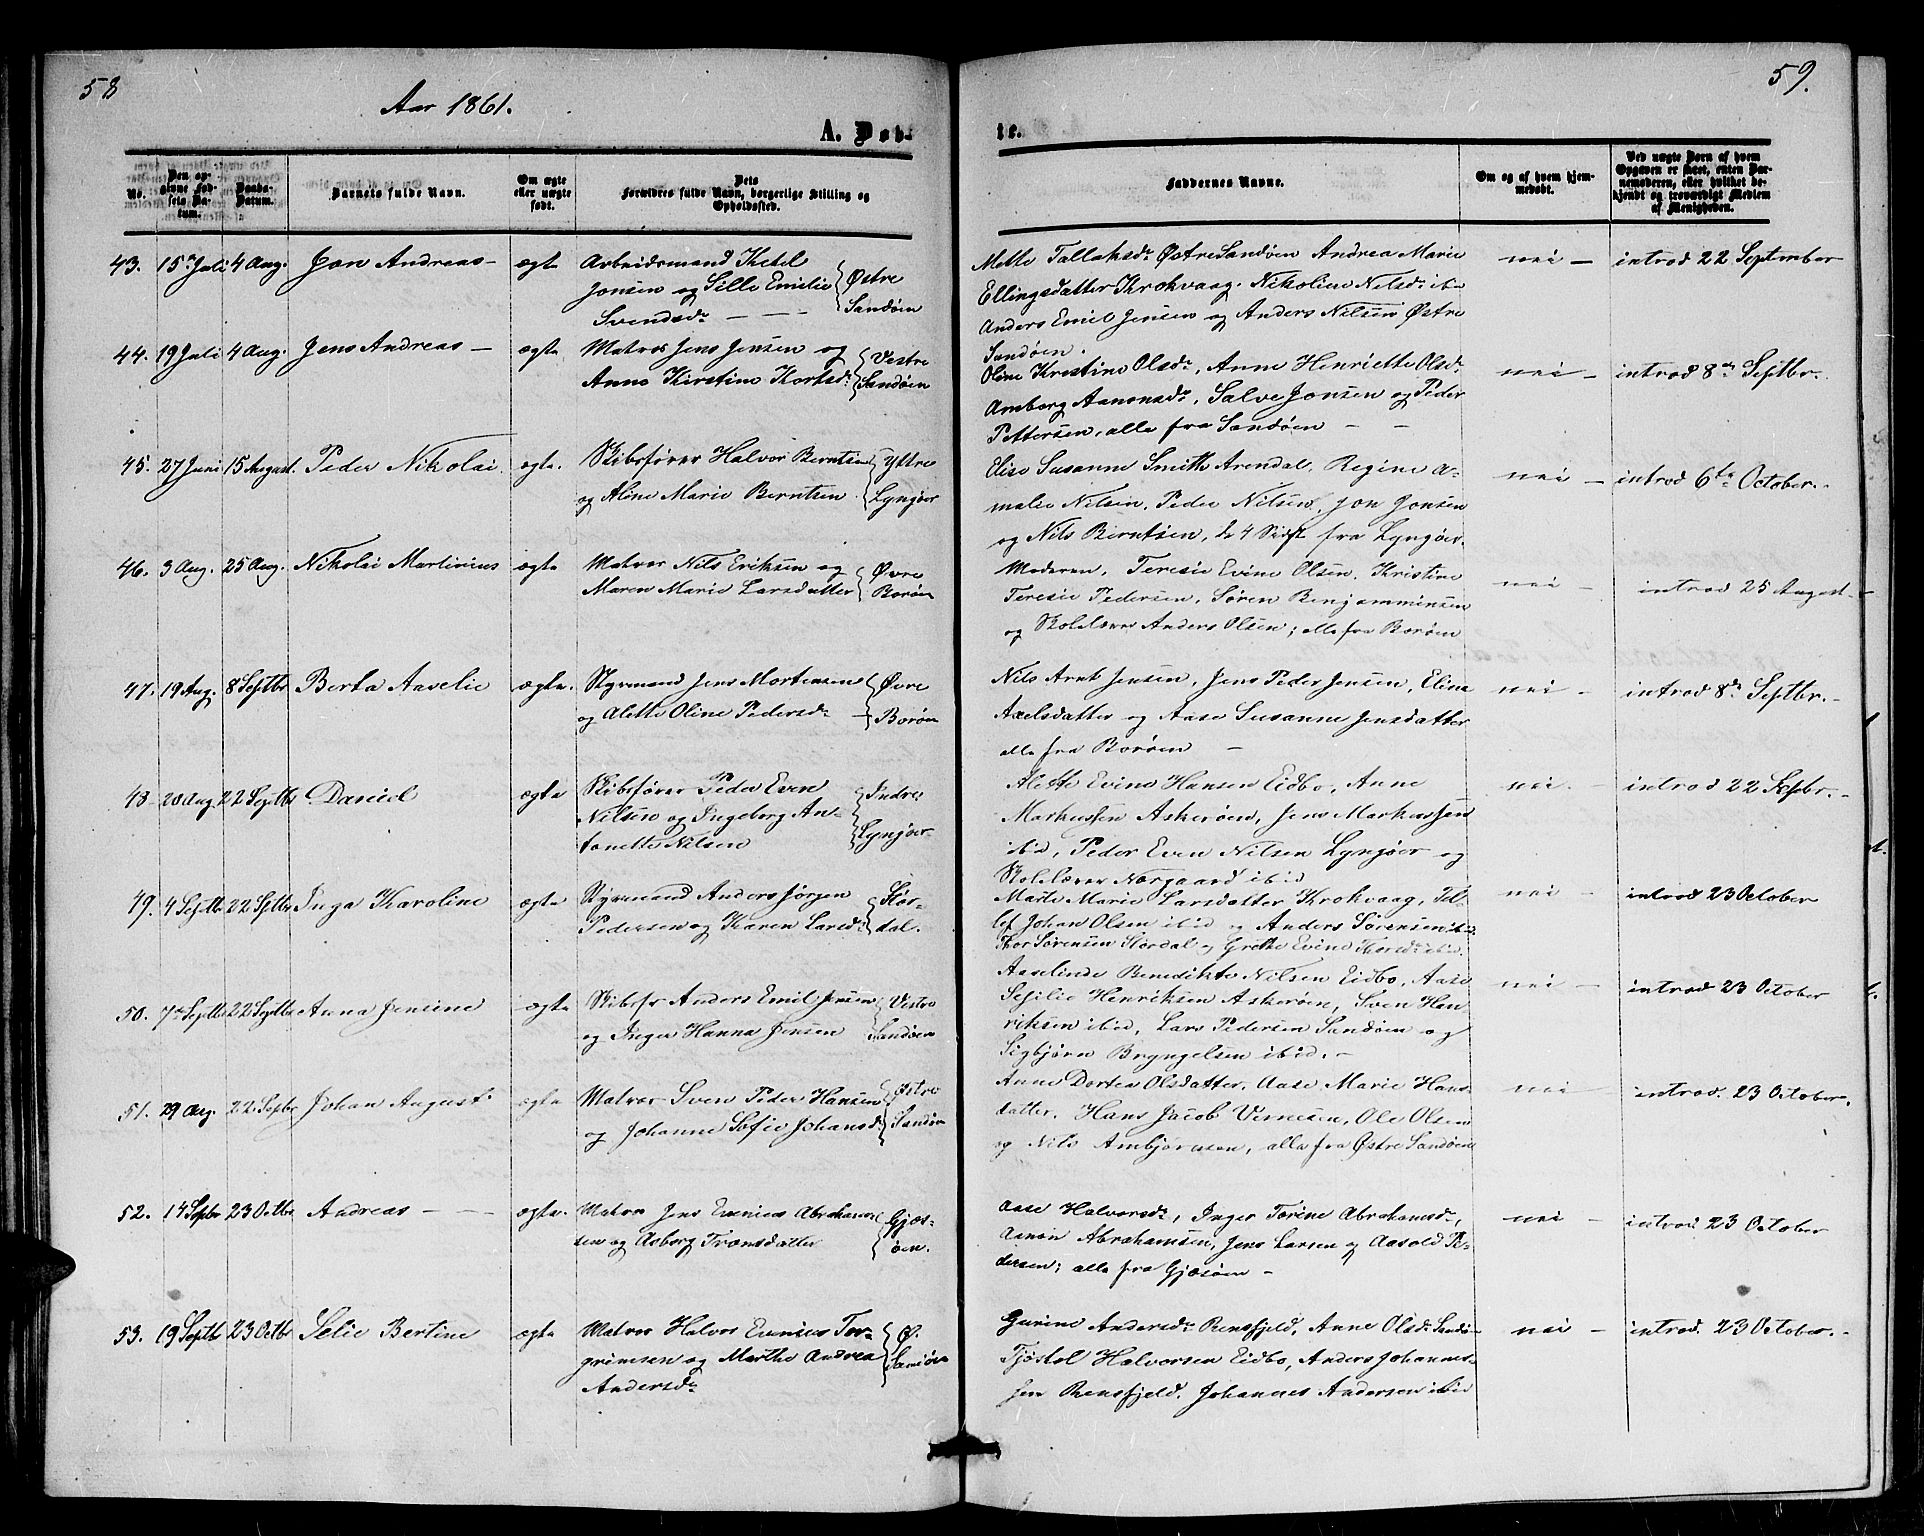 58
Aar 1861.
A. Døb-
No.
Den opgivne Fødsels Datum.
Daabs-Datum.
Barnets fulde Navn.
Om ægte eller uægte født.
Dets Forældres fulde Navn, borgerlige Stilling og Opholdssted.
43. 15de Juli 4 Aug. Jon Andreas — ægte Arbeidsmand Ketel
Jonsen og Sille Emilie Østre
Svendsdr — — — Sandøen
44. 19 Juli 4 Aug. Jens Andreas — ægte Matros Jens Jensen og Vestre
Anne Kirstine Kortsdr. Sandøen
45. 27 Juni 15 August. Peder Nikolai. ægte. Skibsfører Halvor Berntsen Yttre
og Aline Marie Berntsen. Lyngøer
46. 3 Aug. 25 Aug. Nikolai Martinius ægte Matros Nils Eriksen og Øvre
Maren Marie Larsdatter Borøen
47. 19 Aug. 8 Septbr Berta Aaselie ægte. Styrmand Jens Mortensen Øvre
og Alette Oline Pedersdr — Borøen
48 20 Aug. 22 Septbr Daniel ægte Skibsfører Peder Even Indre
Nilsen og Ingeborg An- Lyngøer
tonette Nilsen
49. 4 Septbr 22 Septbr Inga Karoline ægte Styrmand Anders Jørgen Stør-
Pedersen og Karen Larsdr. dal.
50. 7de Septbr 22 Septbr Anna Jensine ægte Skibsfr Anders Emil Jensen Vestre
og Inger Hanna Jensen Sandøen
51. 29 Aug. 22 Septbr Johan August ægte Matros Sven Peder Hansen Østre
og Johanne Sofie Johansdr. Sandøen
52. 14 Septbr 23 Octbr Andreas — — — ægte. Matros Jens Evensen Abraham- Gjæs-
sen og Asborg Trønsdatter øen.
53. 19 Septbr 23 Octbr Selie Bertine ægte Matros Halvor Evensen Tor- Ø.
grimsen og Marthe Andrea Sandøen
Andersdr
59.
te.
Faddernes Navne.
Om og af hvem hjemmedøbt.
Ved uægte Børn af hvem Opgaven er skeet, enten Barnemoderen, eller hvilket bekjendt og troværdigt Medlem af Menigheden.
Mette Tallaksdr Østre Sandøen Andrea Marie nei — introd 22 September
Ellingsdatter Krokvaag. Nikoline Nilsdr. ib-
Anders Emil Jensen og Anders Nilsen Østre
Sandøen.
Oline Kristine Olsdr, Anne Henriette Olsdr. nei — introd 8de Septbr.
Amborg Aanonsdr, Salve Jonsen og Peder
Pettersen, alle fra Sandøen — —
Elise Susanne Smith Arendal, Regine A- nei — introd 6te October.
malie Nilsen, Peder Nilsen, Jon Jonsen
og Nils Berntsen, de 4 Sidst fra Lyngøer.
Moderen, Teresie Evine Olsen. Kristine nei — introd 25 August —
Teresie Pedersen, Søren Benjaminsen
og Skolelærer Anders Olsen; alle fra Borøen
Nils Arnt Jensen, Jens Peder Jensen, Elina nei — introd 8de Septbr. —
Axelsdatter og Aase Susanne Jensdatter
alle fra Borøen —
Alette Evine Hansen Eidbo, Anne nei. — introd 22 Sepbr. —
Markussen Askerøen, Jens Markussen
ibid, Peder Even Nilsen Lyngøer og
Skolelærer Norgaard ibid
Marte Marie Larsdatter Krokvaag, Tel- nei — introd 23 October
lef Johan Olsen ibid og Anders Sørensen ibid.
Thor Sørensen Størdal og Grethe Evine
Aaselinde Benedikte Nilsen Eidbo, Aase nei — introd 23 October
Sesilie Henriksen Askerøen, Sven Hen
riksen ibid, Lars Pedersen Sandøen og
Sigbjørn Bryngelsen ibid. —
Anne Dortea Olsdatter, Aase Marie Hans nei — introd. 23 October.
datter, Hans Jacob Vernesen, Ole Olsen
og Nils Ambjørnsen, alle fra Østre Sandøen
Aase Halvorsdr, Inger Torine Abrahamsdr, nei — introd. 23 October
Aanon Abrahamsen, Jens Larsen og Aasold Pe-
dersen; alle fra Gjæsøen —
Gurine Andersdr Rensfjeld, Anne Olsdr Sandø- nei — introd. 23 October. —
Tjøstol Halvorsen Eidbo, Anders Johannes-
sen Rensfjeld. Johannes Andersen ibid